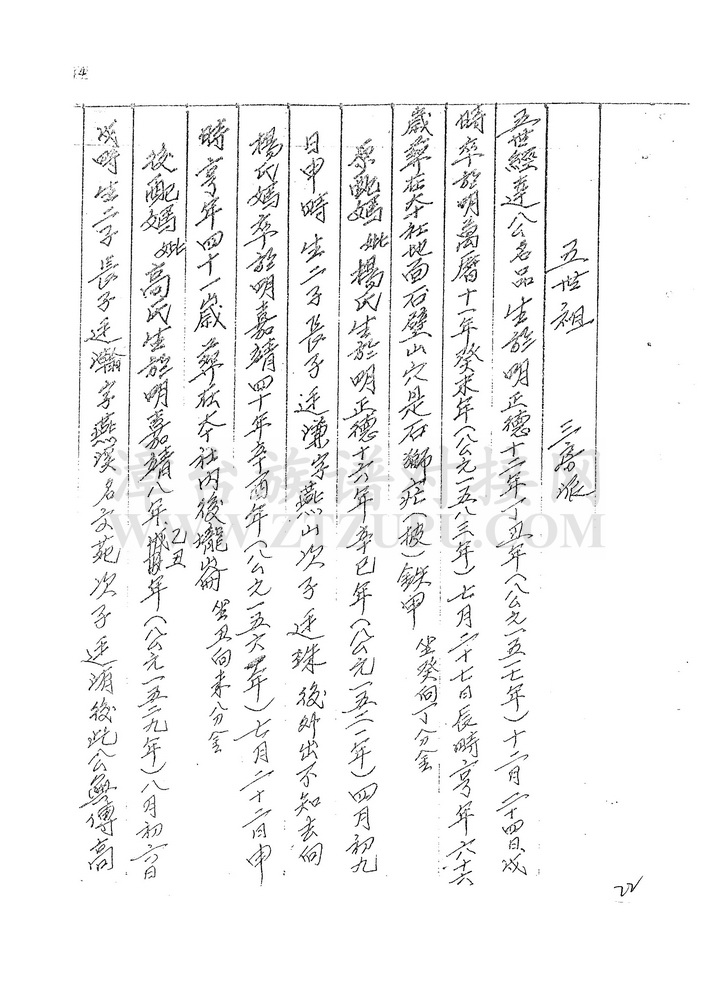 五世祖　　三房派
五世經達八公名品　生於明正德十二年丁丑年（公元一五一七年）十二月二十四日戌
時卒於明萬曆十一年癸未年（公元一五八三年）七月二十七日長時享年六十六
歲葬在本社地面石壁山穴是石獅疕（披）鉄甲　坐癸向丁分金
原配媽妣楊氏生於明正德十六年辛巳年（公元一五二一年）四月初九
日申時　生二子長子廷漢字燕山次子廷珠後外出不知去向
楊氏媽卒於明嘉靖四十年辛酉年（公元一五六一年）七月二十二日申
時享年四十一歲葬在本社內後壠崙　坐丑向未分金
後配媽妣高氏生於明嘉靖八年己丑年（公元一五二九年）八月初六日
戌時生二子長子廷瀚字燕溪名文苑次子廷湏後此公無傳高
22
14
漳台族谱对接网
WWW.ZTZUPU.COM